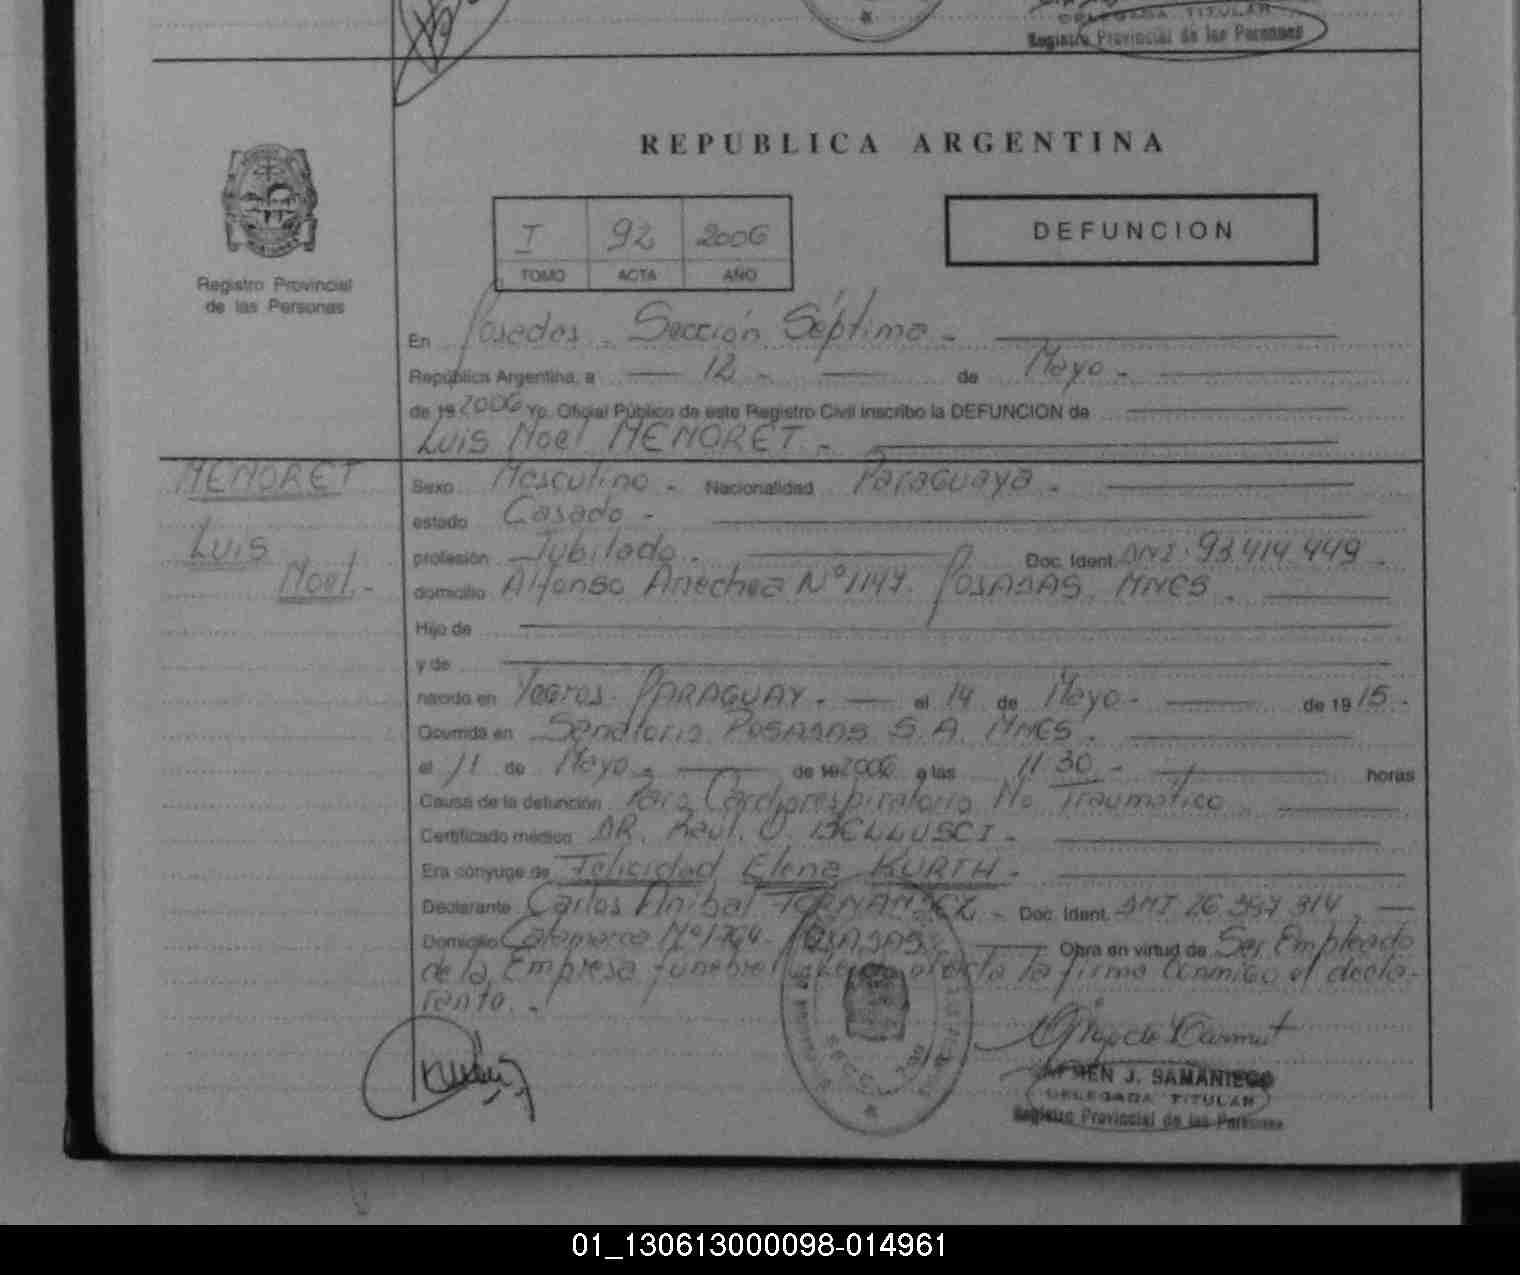 DELEGADA TITULAR
Registro Provincial de las Personas
REPUBLICA ARGENTINA
I 92 2006
TOMO ACTA AÑO
DEFUNCION
Registro Provincial
de las Personas
En Posadas - Sección Séptima -
República Argentina, a 12 - de Mayo -
de 19 2006 Yo, Oficial Público de este Registro Civil inscribo la DEFUNCION de
Luis Noel MENORET. -
MENORET
Luis
Noel. -
Sexo Masculino - Nacionalidad Paraguaya -
estado Casado -
profesión Jubilado. - Doc. Ident. DNI. 93.414.449 -
domicilio Alfonso Arrechea Nº 1147. POSADAS. MNES.
Hijo de
y de
nacido en Yegros. PARAGUAY. - el 14 de Mayo - de 19 15. -
Ocurrida en Sanatorio POSADAS S.A. MNES.
el 11 de Mayo - de 19 2006 a las 11 30 - horas
Causa de la defunción Paro Cardiorespiratorio No Traumático
Certificado médico DR. Raul. O. BELLUSCI -
Era cónyuge de Felicidad Elena KURTH -
Declarante Carlos Anibal - Doc. Ident. DNI 26 314
Domicilio Catamarca Nº POSADAS Obra en virtud de Ser Empleado
de la Empresa funebre la firma conmigo el decla-
rante. -
CARMEN J. SAMANIEGO
DELEGADA TITULAR
Registro Provincial de las Personas
01_130613000098-014961